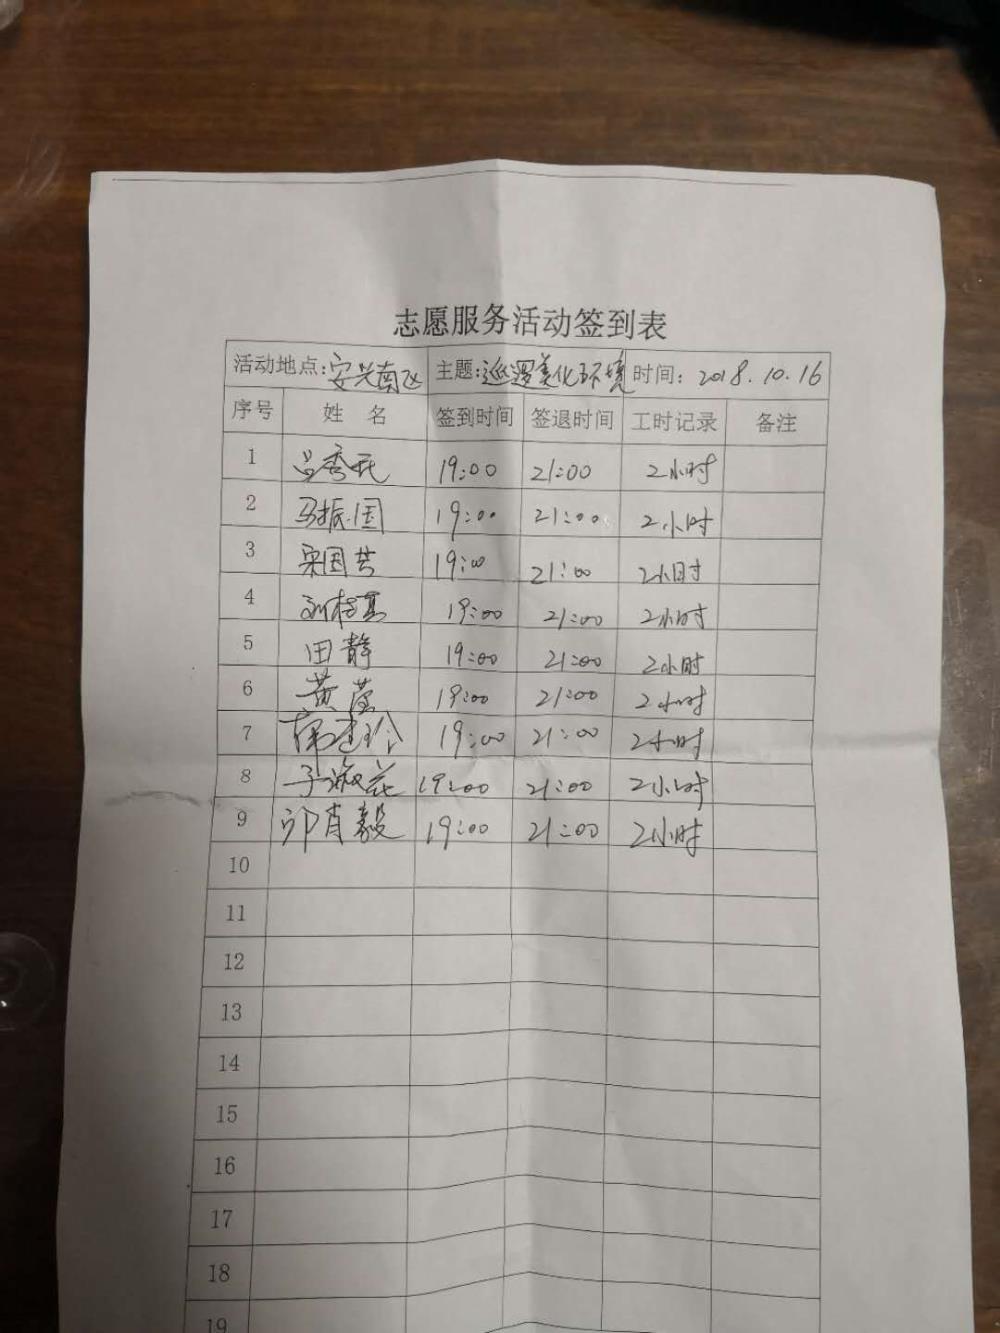 志愿服务活动签到表
活动地点:安兴南区 主题:巡逻美化环境 时间:2018.10.16
序号 姓 名 签到时间 签退时间 工时记录 备注
1 19:00 21:00 2小时
2 马振国 19:00 21:00 2小时
3 19:00 21:00 2小时
4 19:00 21:00 2小时
5 田静 19:00 21:00 2小时
6 黄莹 19:00 21:00 2小时
7 19:00 21:00 2小时
8 19:00 21:00 2小时
9 19:00 21:00 2小时
10
11
12
13
14
15
16
17
18
19